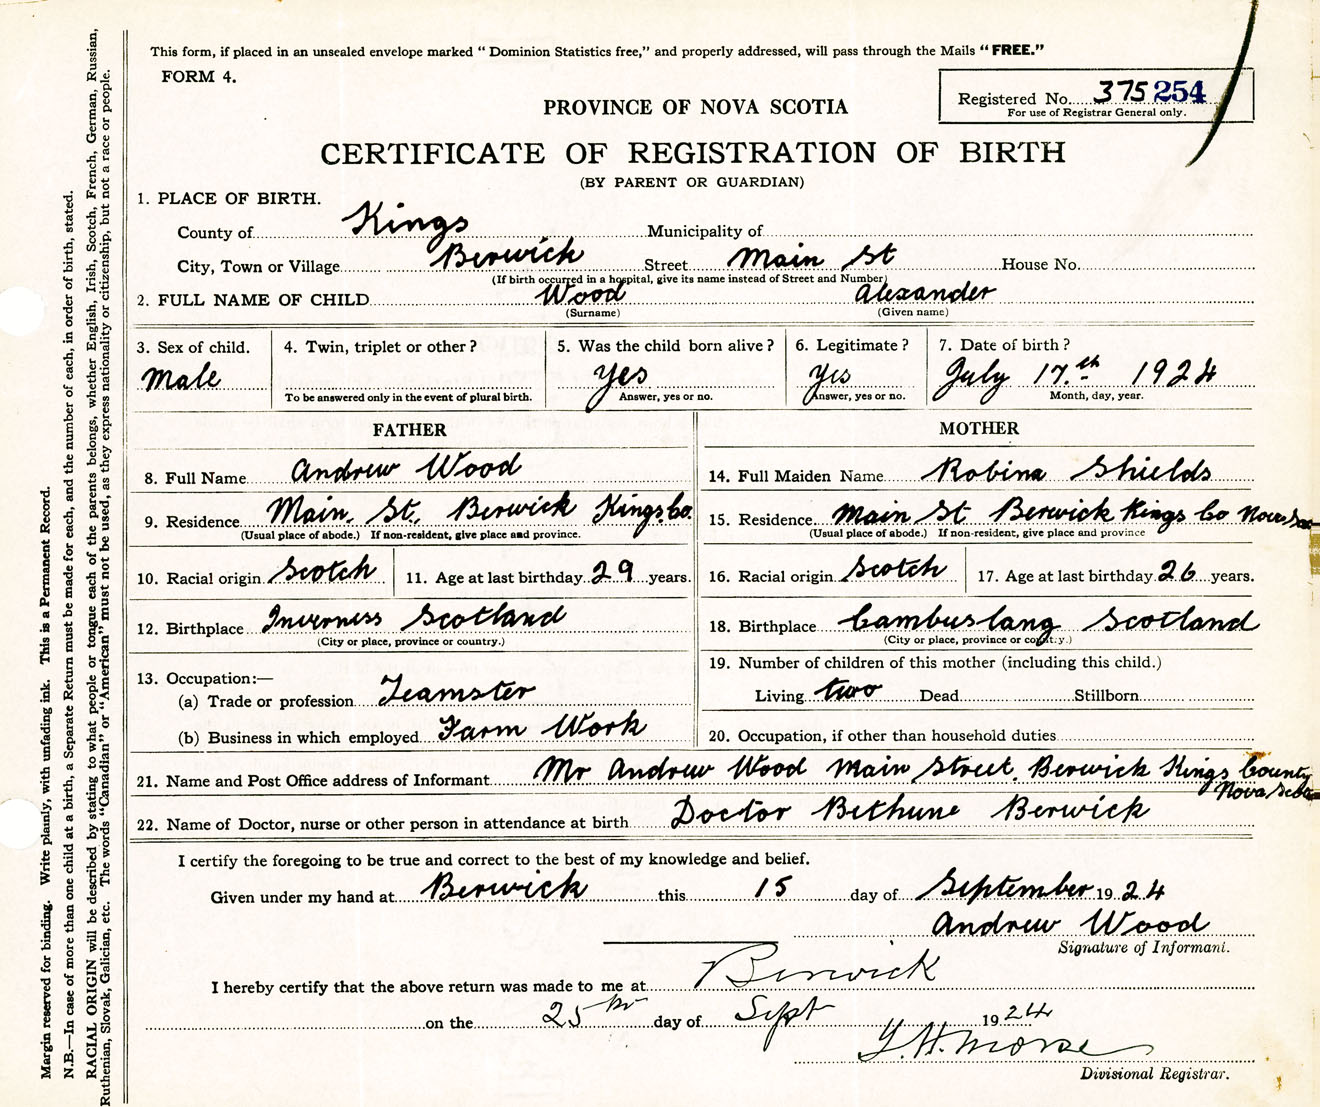 This form, if placed in an unsealed envelope marked " Dominion Statistics free," and properly addressed, will pass through the Mails " FREE."
FORM 4.
Registered No. 375 254
For use of Registrar General only.
PROVINCE OF NOVA SCOTIA
CERTIFICATE OF REGISTRATION OF BIRTH
(BY PARENT OR GUARDIAN)
1. PLACE OF BIRTH.
County of Kings Municipality of
City, Town or Village Berwick Street Main St House No.
(If birth occurred in a hospital, give its name instead of Street and Number)
2. FULL NAME OF CHILD Wood Alexander
(Surname) (Given name)
3. Sex of child. 4. Twin, triplet or other ? 5. Was the child born alive ? 6. Legitimate ? 7. Date of birth ?
Male yes yes July 17.th 1924
To be answered only in the event of plural birth. Answer, yes or no. Answer, yes or no. Month, day, year.
FATHER MOTHER
8. Full Name Andrew Wood
9. Residence Main. St., Berwick Kings.Co.
(Usual place of abode.) If non-resident, give place and province.
10. Racial origin Scotch 11. Age at last birthday 29 years.
12. Birthplace Inverness Scotland
(City or place, province or country.)
13. Occupation:—
(a) Trade or profession Teamster
(b) Business in which employed Farm Work
14. Full Maiden Name Robina Shields
15. Residence Main St Berwick Kings Co Nova
(Usual place of abode.) If non-resident, give place and province
16. Racial origin Scotch 17. Age at last birthday 26 years.
18. Birthplace Cambuslang Scotland
(City or place, province or country.)
19. Number of children of this mother (including this child.)
Living two Dead Stillborn
20. Occupation, if other than household duties
21. Name and Post Office address of Informant Mr Andrew Wood Main Street. Berwick Kings County
Nova Scotia
22. Name of Doctor, nurse or other person in attendance at birth Doctor Bethune Berwick
I certify the foregoing to be true and correct to the best of my knowledge and belief.
Given under my hand at Berwick this 15 day of September 1924
Andrew Wood
Signature of Informant.
I hereby certify that the above return was made to me at Berwick
on the 25th day of Sept 1924
Morse
Divisional Registrar.
Margin reserved for binding. Write plainly, with unfading ink. This is a Permanent Record.
N.B.—In case of more than one child at a birth, a Separate Return must be made for each, and the number of each, in order of birth, stated.
RACIAL ORIGIN will be described by stating to what people or tongue each of the parents belongs, whether English, Irish, Scotch, French, German, Russian,
Ruthenian, Slovak, Galician, etc. The words "Canadian" or "American" must not be used, as they express nationality or citizenship, but not a race or people.